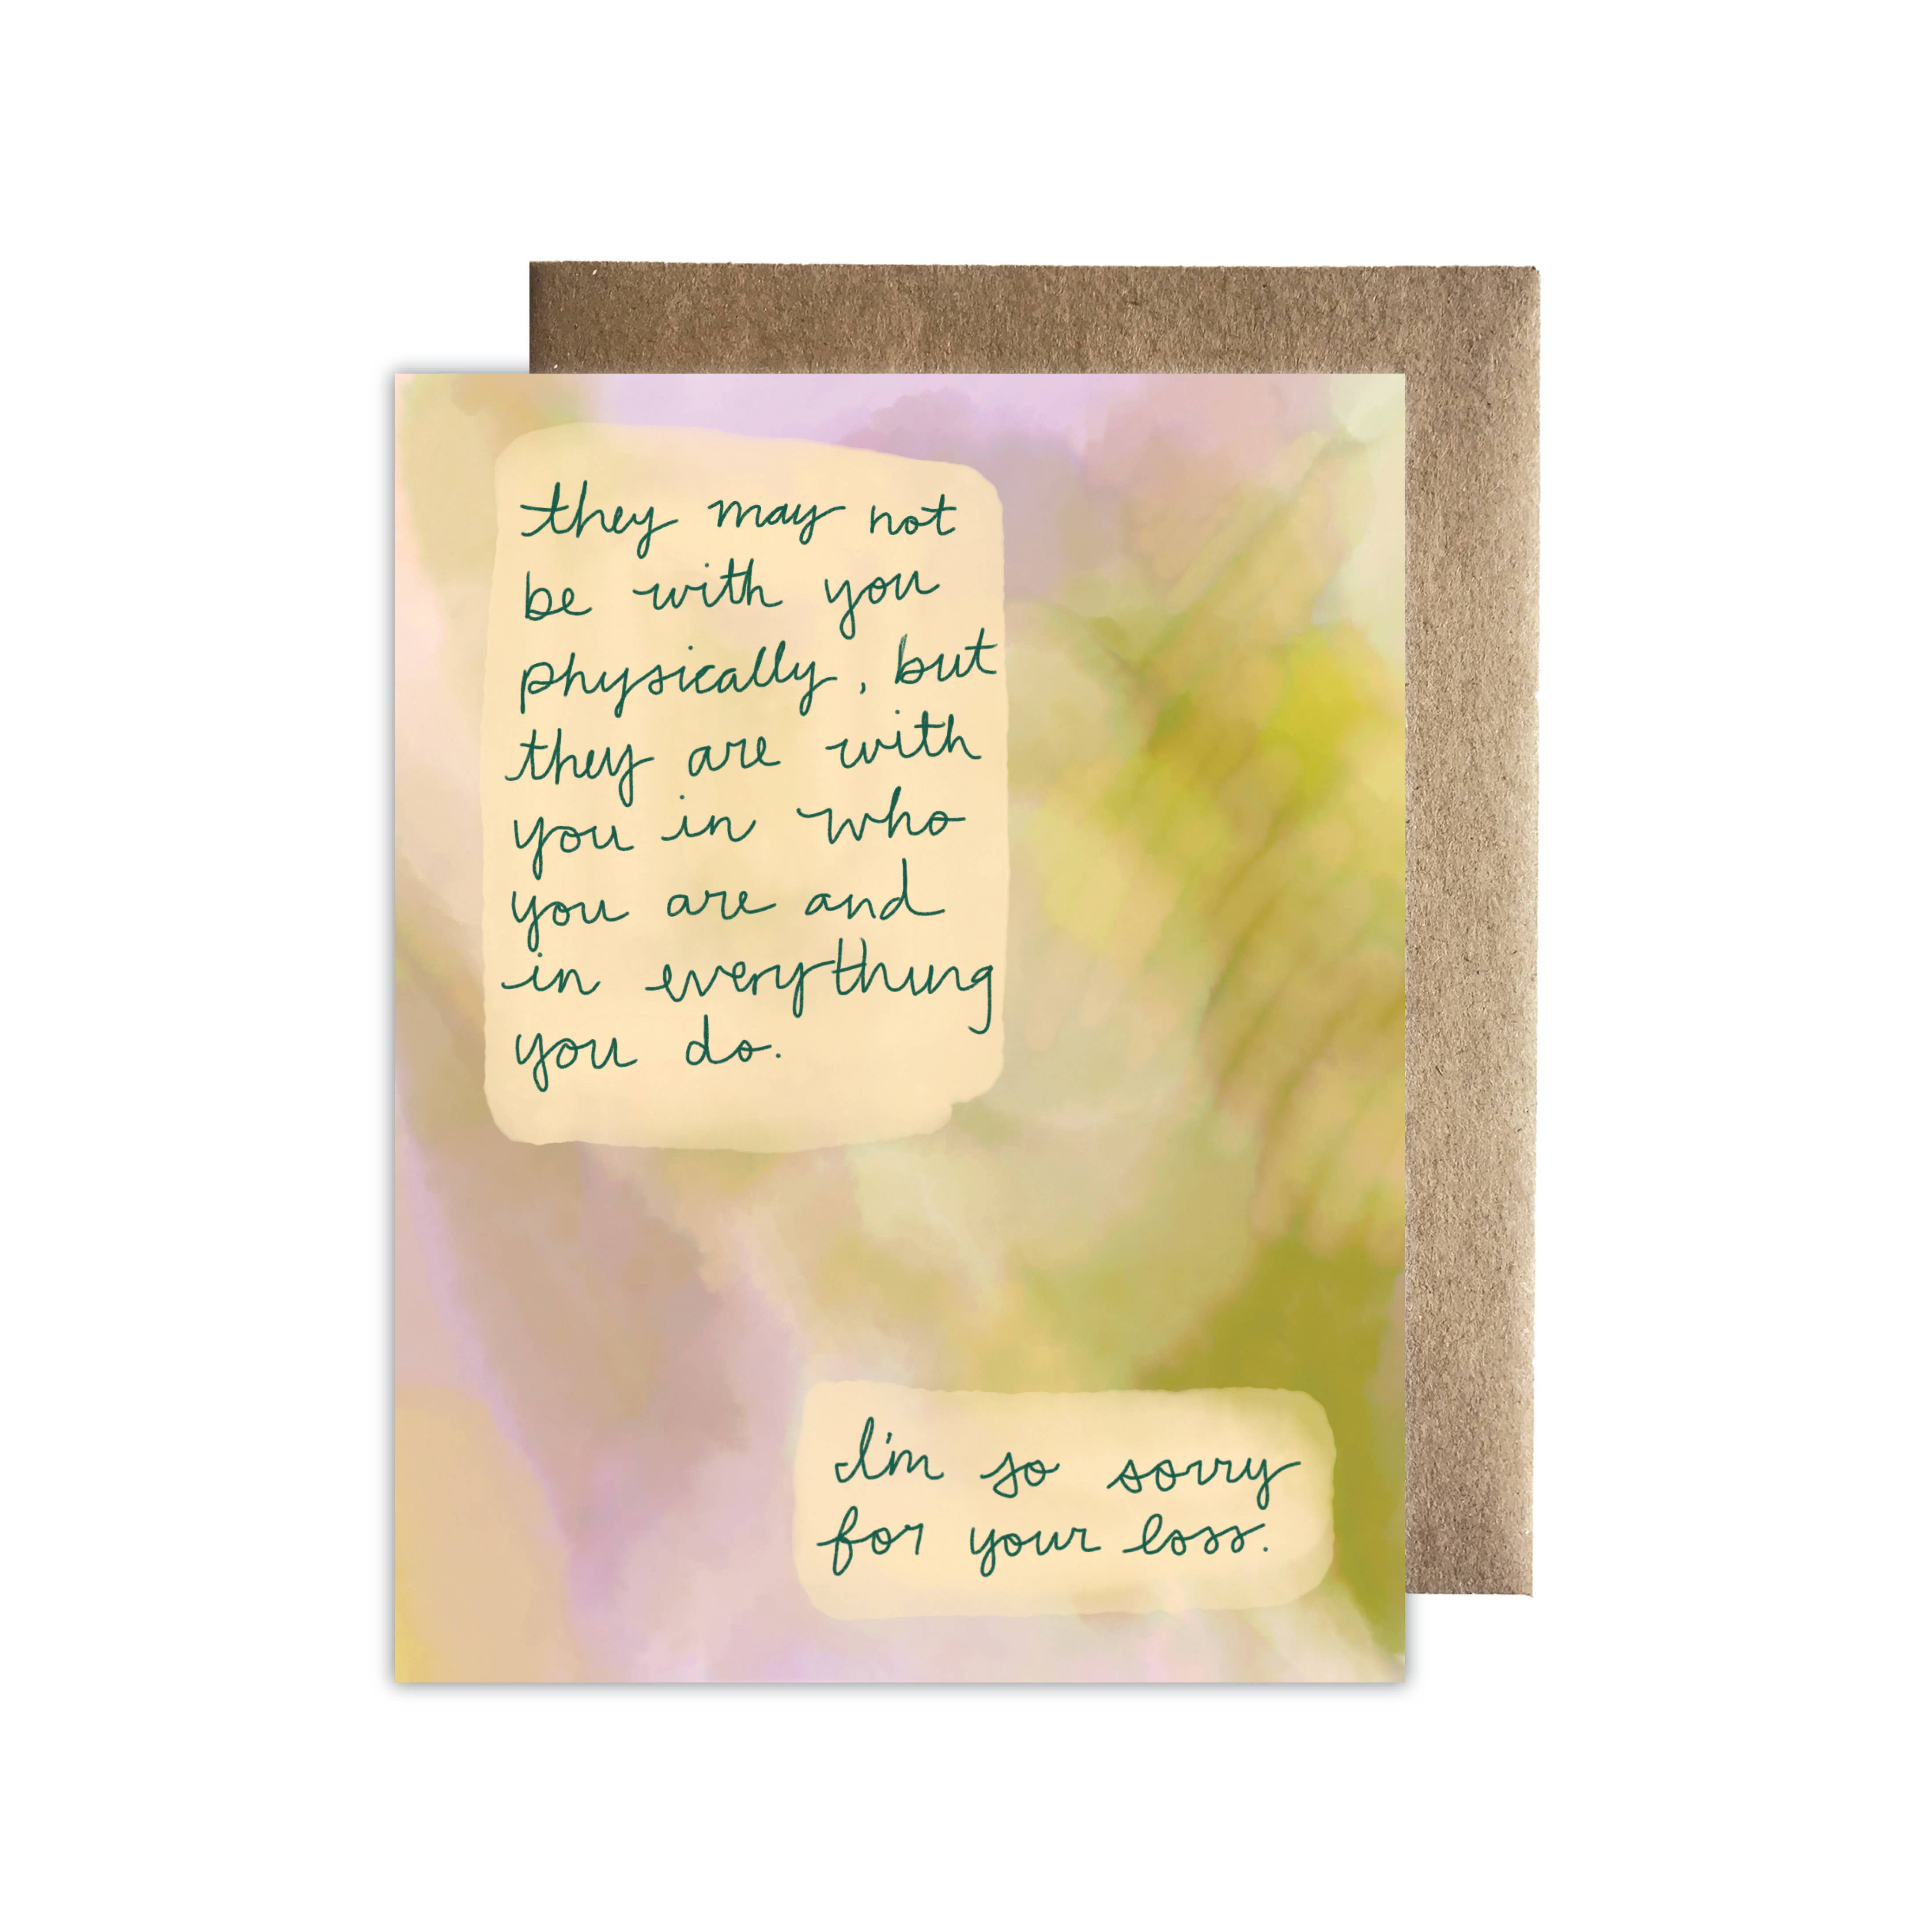 they may not
be with you
physically, but
they are with
you in who
you are and
in everything
you do.
I'm so sorry
for your loss.